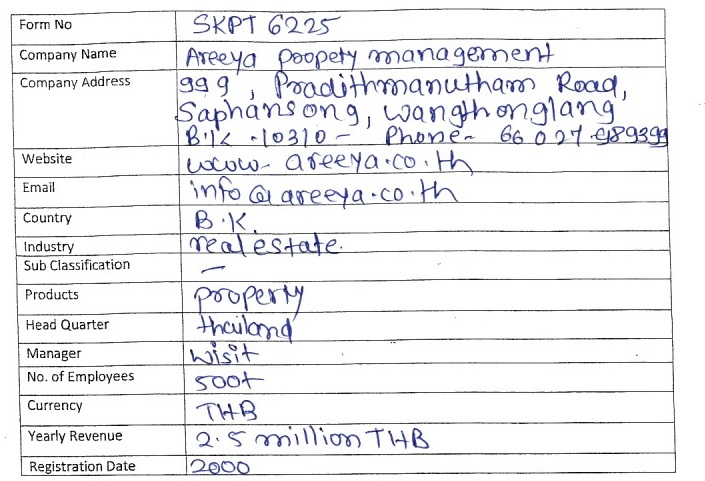 Form No SKPT 6225
Company Name Areeya poopety management
Company Address 999, Pradithmanutham Road,
Saphansong, wangthonglang
B.K -10310- Phone- 66 027 989399
Website www- areeya.co.th
Email info@areeya.co.th
Country B.K.
Industry real estate.
Sub Classification –
Products property
Head Quarter thailand
Manager wisit
No. of Employees 500+
Currency THB
Yearly Revenue 2.5 million THB
Registration Date 2000